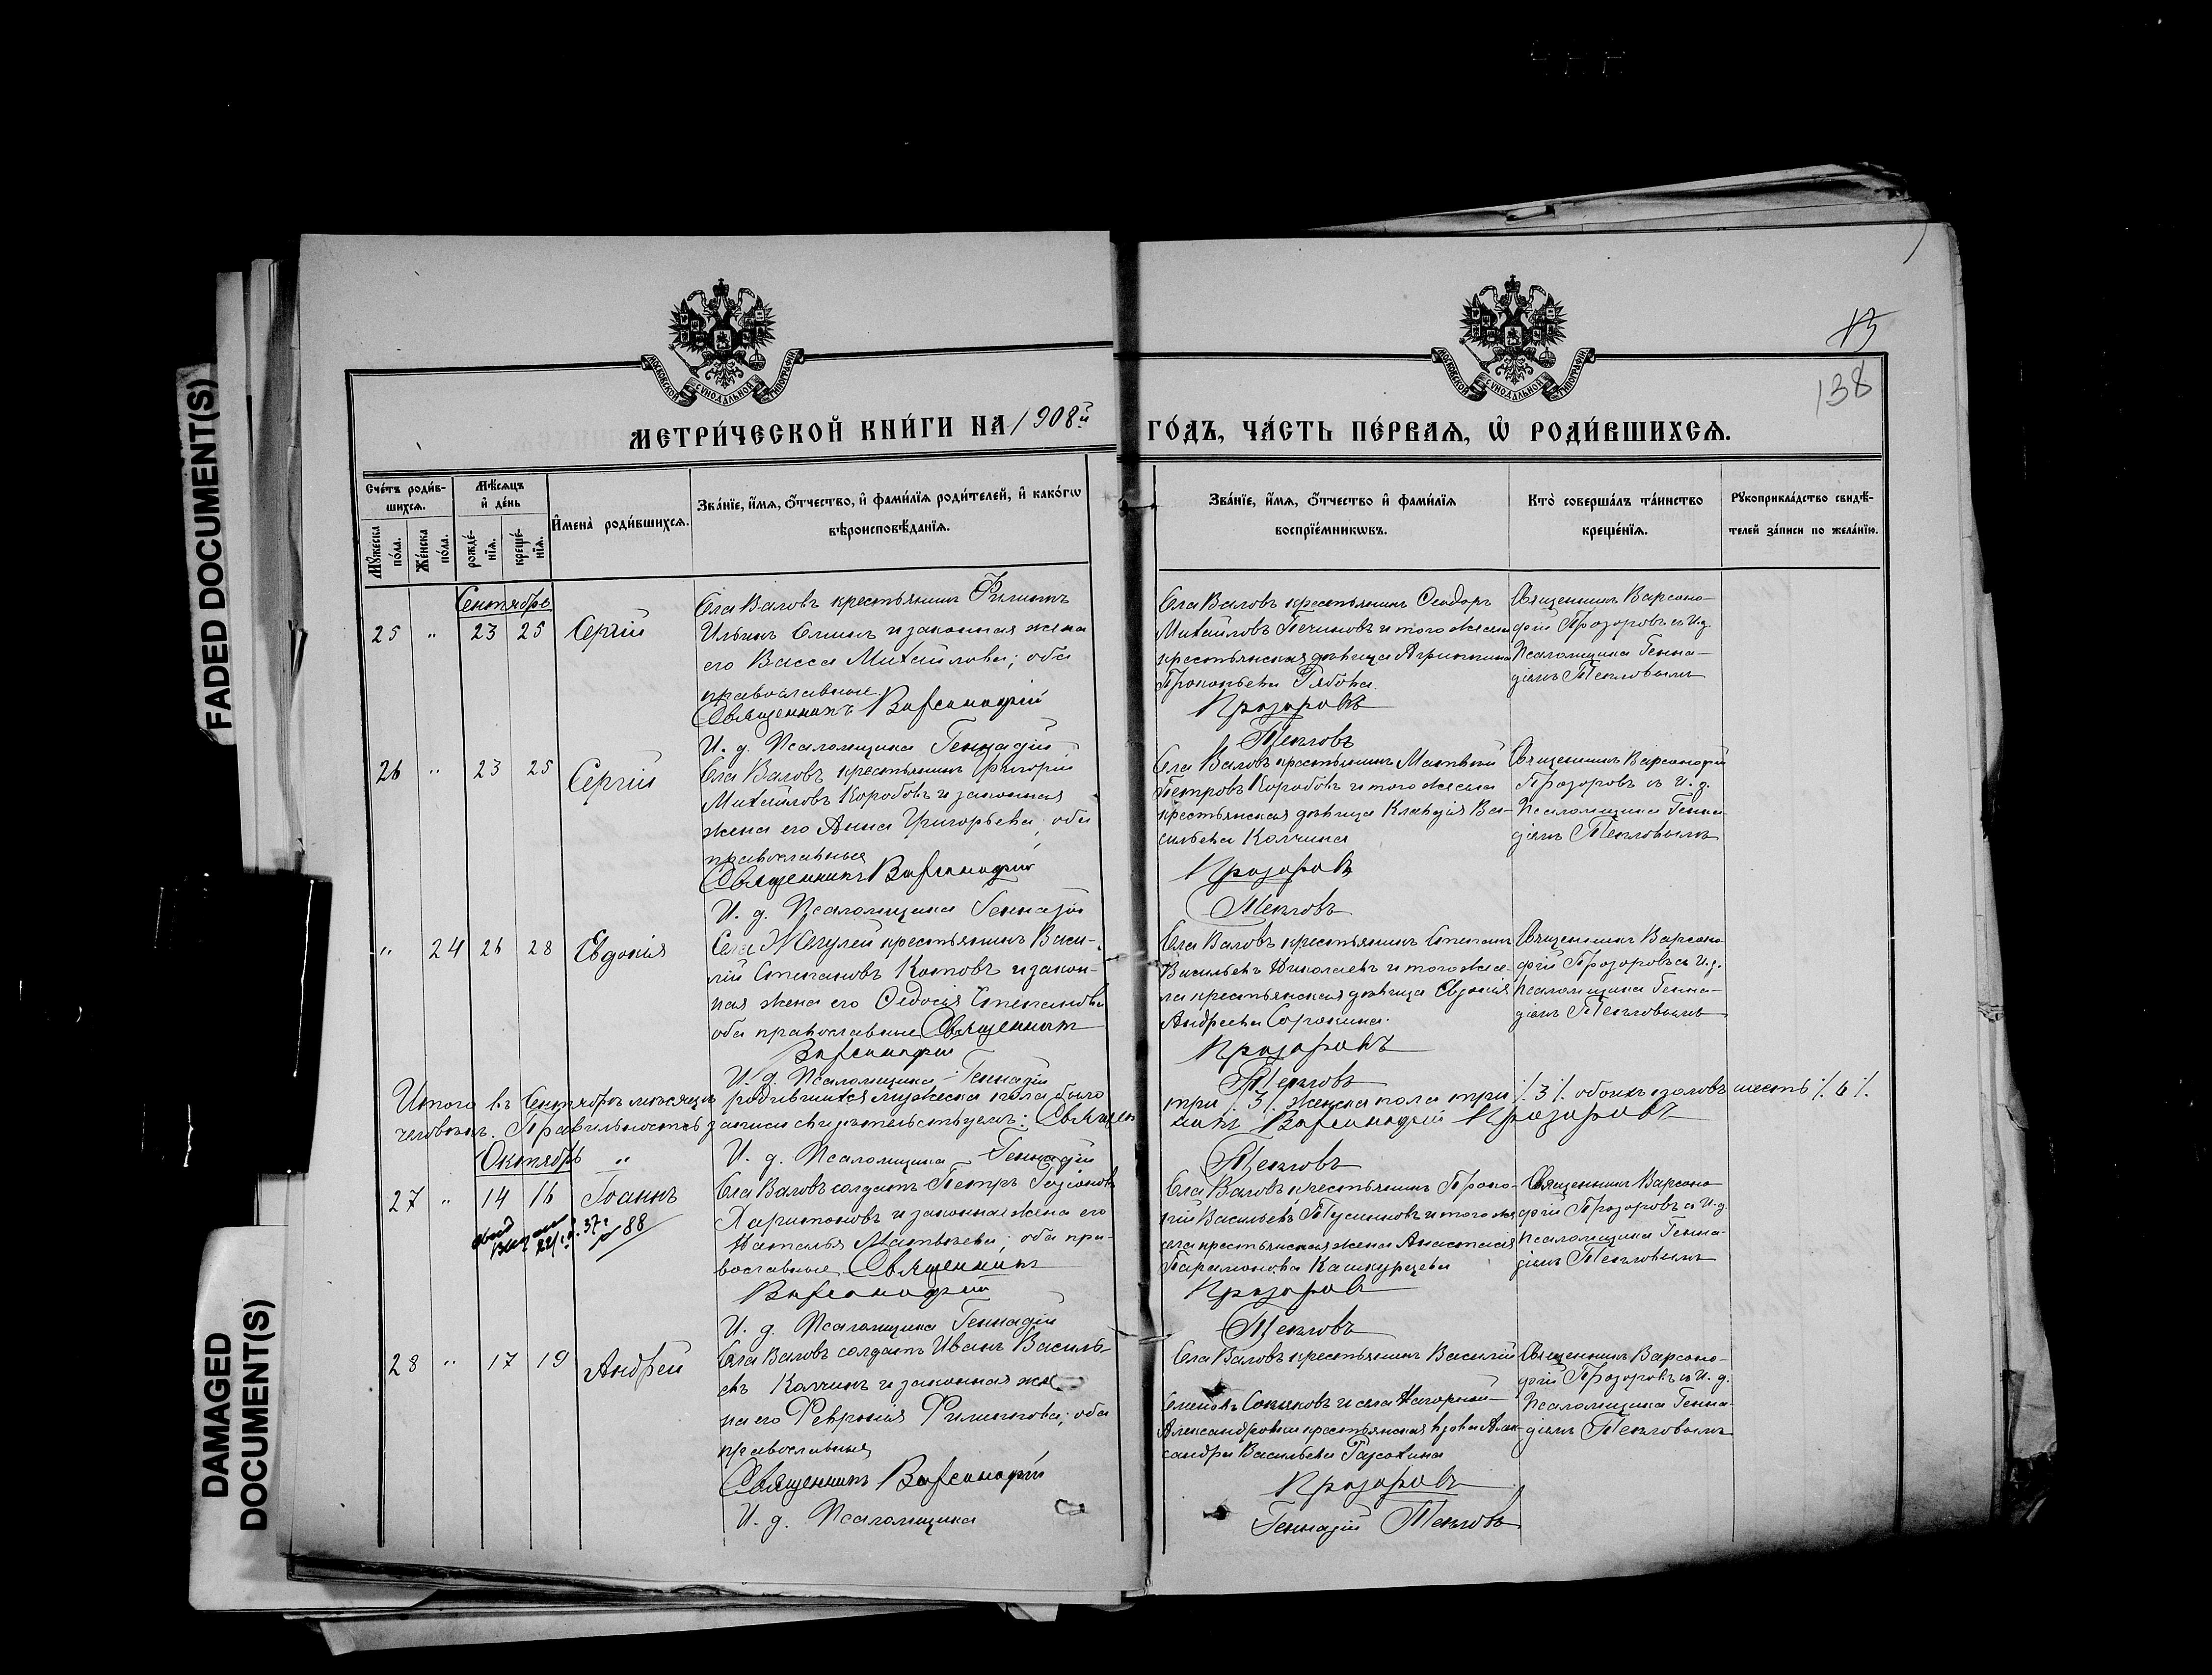 FADED DOCUMENT(S)
DAMAGED DOCUMENT(S)
МОСКОВСКОЙ СѴНОДАЛЬНОЙ ТИПОГРАФІИ
МОСКОВСКОЙ СѴНОДАЛЬНОЙ ТИПОГРАФІИ
13
138
МЕТРИ́ЧЕСКОЙ КНИ́ГИ НА 1908й ГО́ДЪ, ЧА́СТЬ ПЕ́РВАѦ, Ѡ҆ РОДИ́ВШИХСѦ.
Сче́тъ роди́в-
шихсѧ.
Мꙋ́жеска по́ла.
Же́нска по́ла.
Мѣ́сѧцъ
и҆ де́нь
рожде́-
нїѧ.
креще́-
нїѧ.
И҆мена̀ роди́вшихсѧ.
Зва́нїе, и҆́мѧ, ѻ҆́тчество, и҆ фами́лїѧ роди́телей, и҆ како́гѡ
вѣроисповѣ́данїѧ.
Зва́нїе, и҆́мѧ, ѻ҆́тчество и҆ фами́лїѧ
воспрїе́мникѡвъ.
Кто̀ соверша́лъ та́инство
креще́нїѧ.
Рꙋкоприкла́дство свидѣ́-
телей за́писи по жела́нїю.
Сентябрь
25 " 23 25 Сергій
Села Валовъ крестьянинъ Филиппъ
Ильинъ Еминъ и законная жена
его Васса Михайлова; оба
православные.
Священникъ Варсонофій
И. д. Псаломщика Геннадій
Села Валовъ крестьянинъ Ѳеодоръ
Михайловъ Печиновъ и того же села
крестьянская дѣвица Агриппина
Прокопьева Рябова.
Прозоровъ
Тепловъ
Священникъ Варсоно-
фій Прозоровъ съ И.д.
Псаломщика Генна-
діемъ Тепловымъ
26 " 23 25 Сергій
Села Валовъ крестьянинъ Григорій
Михайловъ Коробовъ и законная
жена его Анна Григорьева; оба
православные
Священникъ Варсонофій
И. д. Псаломщика Геннадій
Села Валовъ крестьянинъ Матвѣй
Петровъ Коробовъ и того же села
крестьянская дѣвица Клавдія Ва-
сильева Колчина
Прозоровъ
Тепловъ
Священникъ Варсонофій
Прозоровъ съ И. д.
Псаломщика Генна-
діемъ Тепловымъ
" 24 26 28 Евдокія
Села Жегулей крестьянинъ Васи-
лій Степановъ Котовъ и закон-
ная жена его Ѳедосія Степанова
оба православные Священникъ
Варсонофій
И. д. Псаломщика Геннадій
Села Валовъ крестьянинъ Степанъ
Васильевъ Николаевъ и того же се-
ла крестьянская дѣвица Евдокія
Андреева Сорокина.
Прозоровъ
Тепловъ
Священникъ Варсоно
фій Прозоровъ съ И.д.
Псаломщика Генна-
діемъ Тепловымъ
Итого въ Сентябрѣ мѣсяцѣ родившихся мужеска пола было три /.3/. женска пола три /.3/. обоихъ половъ шесть /.6/.
человѣкъ. Правильность записи свидѣтельствуемъ: Священникъ Варсонофій Прозоровъ
И. д. Псаломщика Геннадій Тепловъ
Октябрь "
27 " 14 16 Іоаннъ
88
Села Валовъ солдатъ Петръ Родіоновъ
Харитоновъ и законная жена его
Наталья Матвѣева; оба пра-
вославные. Священникъ
Варсонофій
И. д. Псаломщика Геннадій
Села Валовъ крестьянинъ Проко-
пій Васильевъ и того же
села крестьянская жена Анастасія
Парамонова
Прозоровъ
Тепловъ
Священникъ Варсоно
фій Прозоровъ съ И.д.
Псаломщика Генна-
діемъ Тепловымъ
28 " 17 19 Андрей
Села Валовъ солдатъ Иванъ Василь-
евъ Колчинъ и законная же
на его Февронія Филиппова; оба
православные
Священникъ Варсонофій
И. д. Псаломщика
Села Валовъ крестьянинъ Василій
Семеновъ и села Нагорной
Александровки крестьянская вдова Алек-
сандра Васильева
Прозоровъ
Геннадій Тепловъ
Священникъ Варсоно-
фій Прозоровъ съ И. д.
Псаломщика Генна-
діемъ Тепловымъ